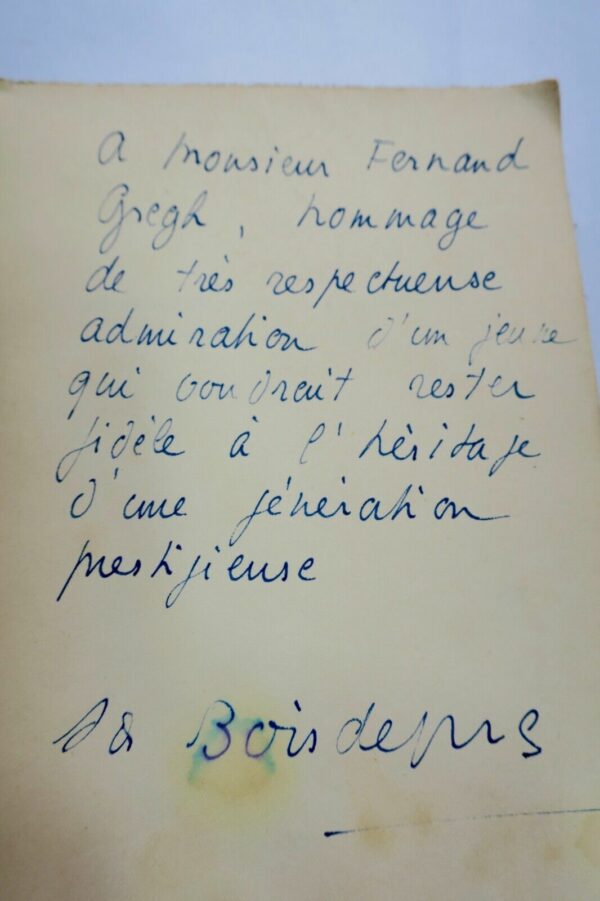 A Monsieur Fernand
Gregh, hommage
de très respectueuse
admiration d'un jeune
qui voudrait rester
fidèle à l'héritage
d'une génération
prestigieuse
Boisdeffre